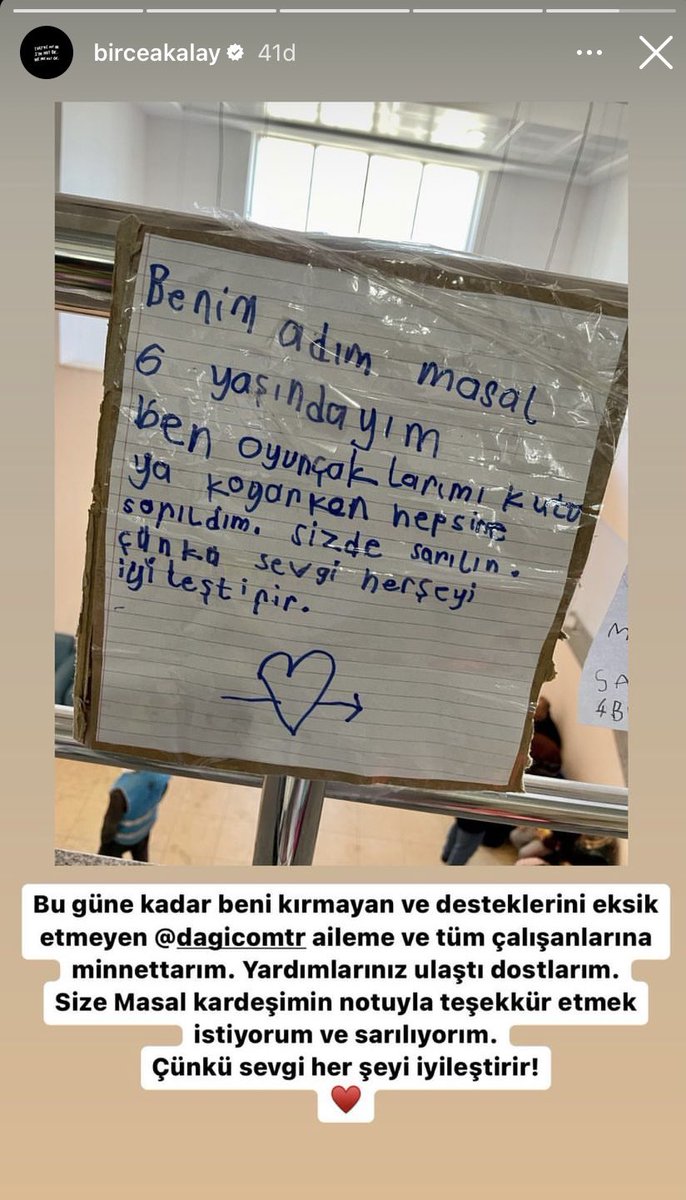 birceakalay 41d
Benim adım masal
6 yaşındayım
ben oyunçaklarımı kutu
ya koyarken hepsine
sarıldım. sizde sarılın.
çünkü sevgi herşeyi
iyileştirir.
M
SA
4B
Bu güne kadar beni kırmayan ve desteklerini eksik
etmeyen @dagicomtr aileme ve tüm çalışanlarına
minnettarım. Yardımlarınız ulaştı dostlarım.
Size Masal kardeşimin notuyla teşekkür etmek
istiyorum ve sarılıyorım.
Çünkü sevgi her şeyi iyileştirir!